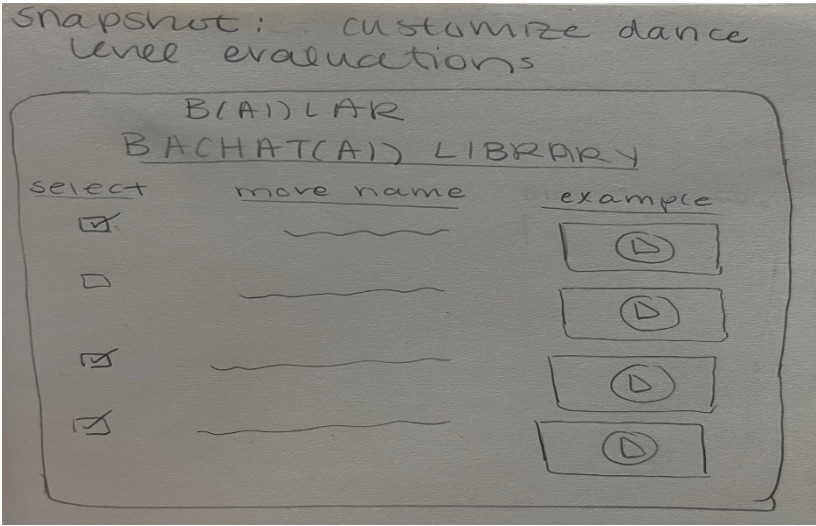 snapshot: customize dance
level evaluations
B(AI)LAR
BACHAT(AI) LIBRARY
select move name example